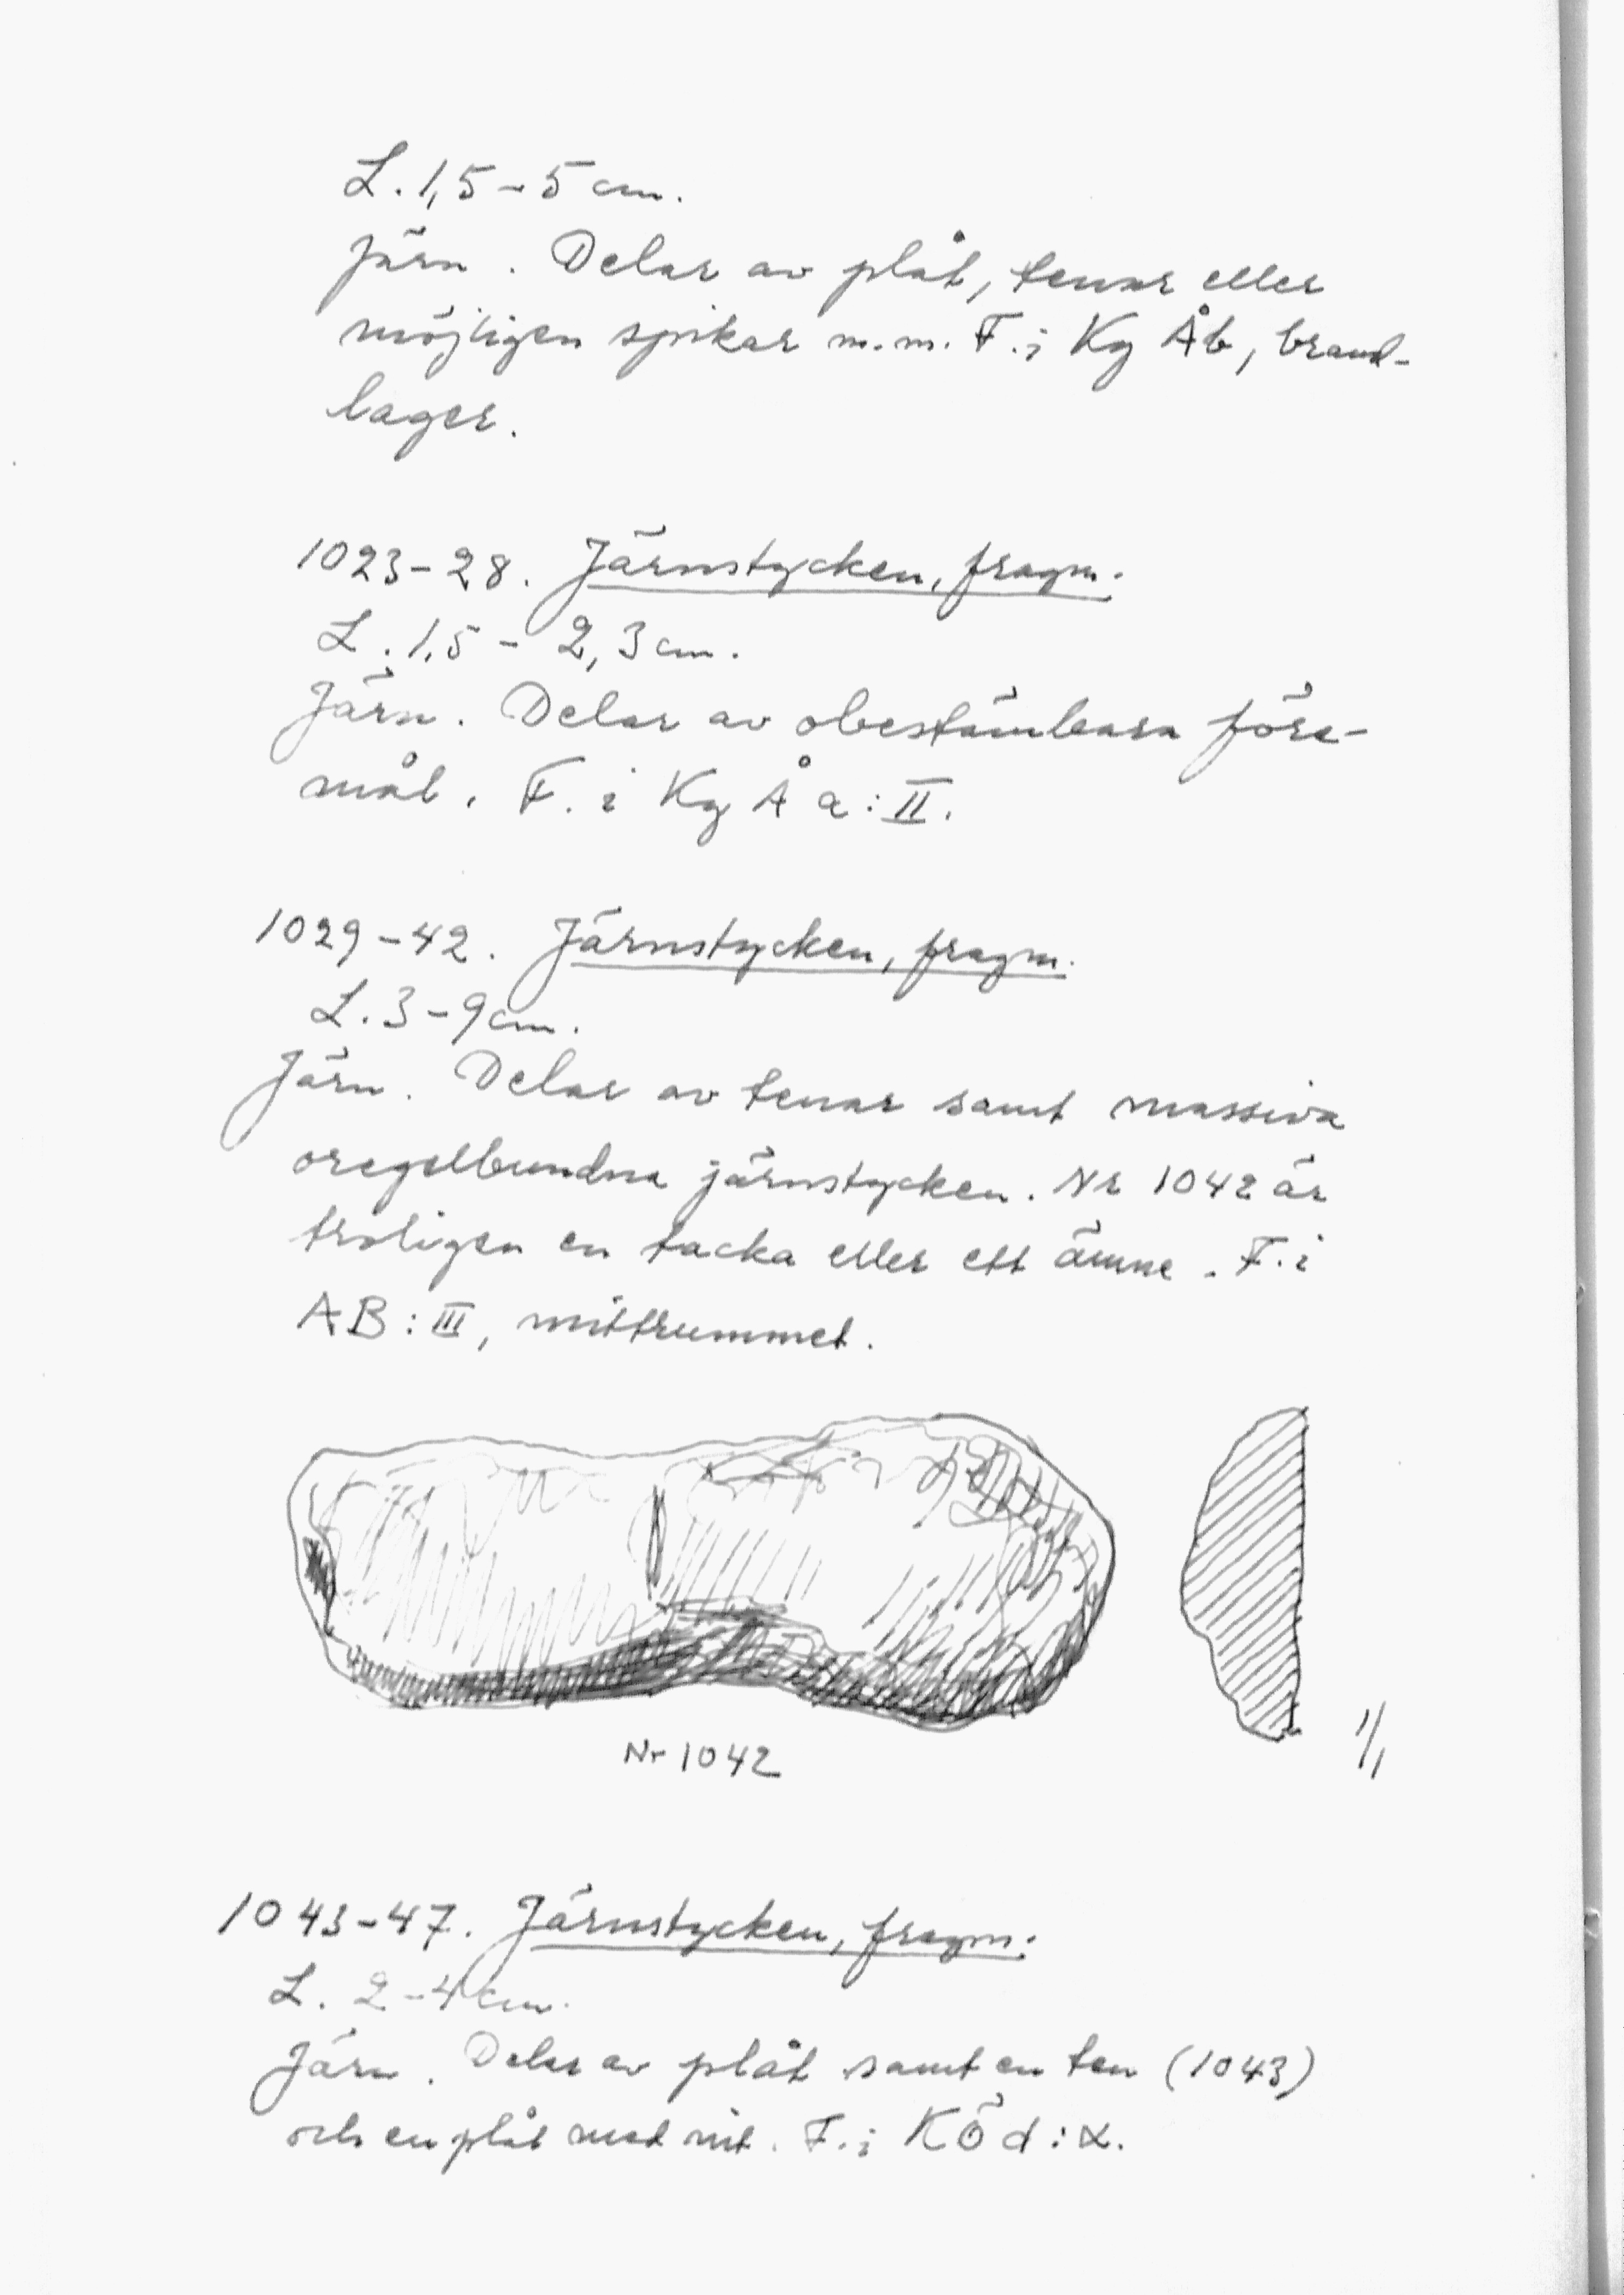 L. 1,5 – 5 cm.
Järn. Delar av plåt, tenar eller
möjligen spikar m.m. F. i Kg Åb, brand-
lager.
1023–28. Järnstycken, fragm.
L. 1,5 – 2,3 cm.
Järn. Delar av obestämbara före-
mål. F. i Kg Å a:II.
1029–42. Järnstycken, fragm.
L. 3–9 cm.
Järn. Delar av tenar samt massiva
oregelbundna järnstycken. Nr 1042 är
troligen en tacka eller ett ämne. F. i
AB:III, mittrummet.
Nr 1042
1/1
1043–47. Järnstycken, fragm.
L. 2–4 cm.
Järn. Delar av plåt samt en ten (1043)
och en plåt med nit. F. i KÖd:α.